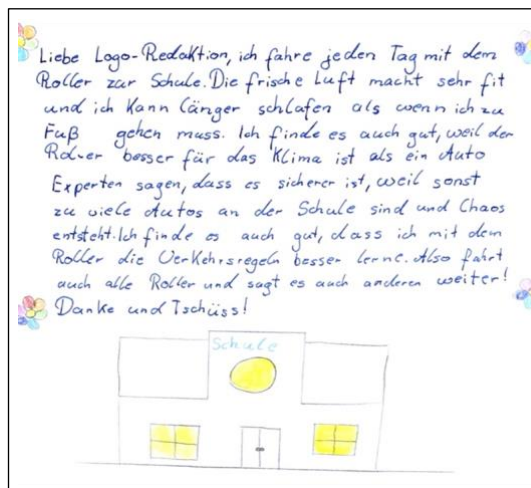 Liebe Logo-Redaktion, ich fahre jeden Tag mit dem
Roller zur Schule. Die frische Luft macht sehr fit
und ich kann länger schlafen als wenn ich zu
Fuß gehen muss. Ich finde es auch gut, weil der
Roller besser für das Klima ist als ein Auto
Experten sagen, dass es sicherer ist, weil sonst
zu viele Autos an der Schule sind und Chaos
entsteht. Ich finde es auch gut, dass ich mit dem
Roller die Verkehrsregeln besser lerne. Also fahrt
auch alle Roller und sagt es auch anderen weiter!
Danke und Tschüss!
Schule